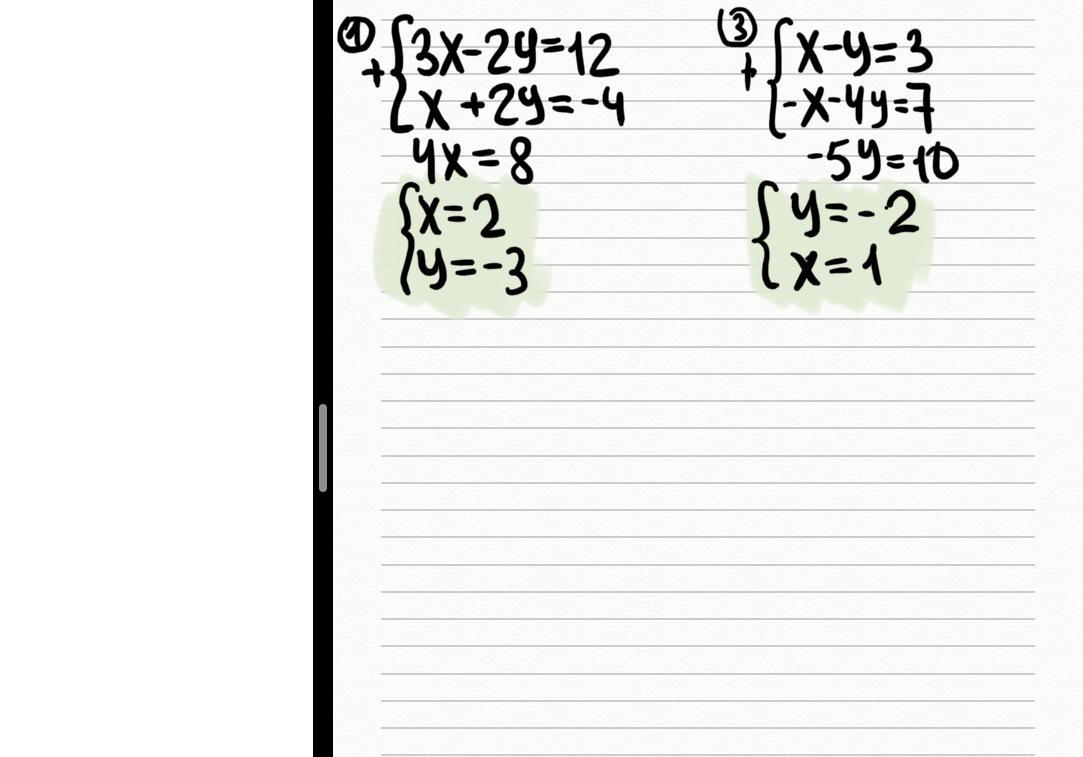 ①
+
{3x-2y=12
x+2y=-4
4x=8
{x=2
y=-3
③
+
{x-y=3
-x-4y=7
-5y=10
{y=-2
x=1